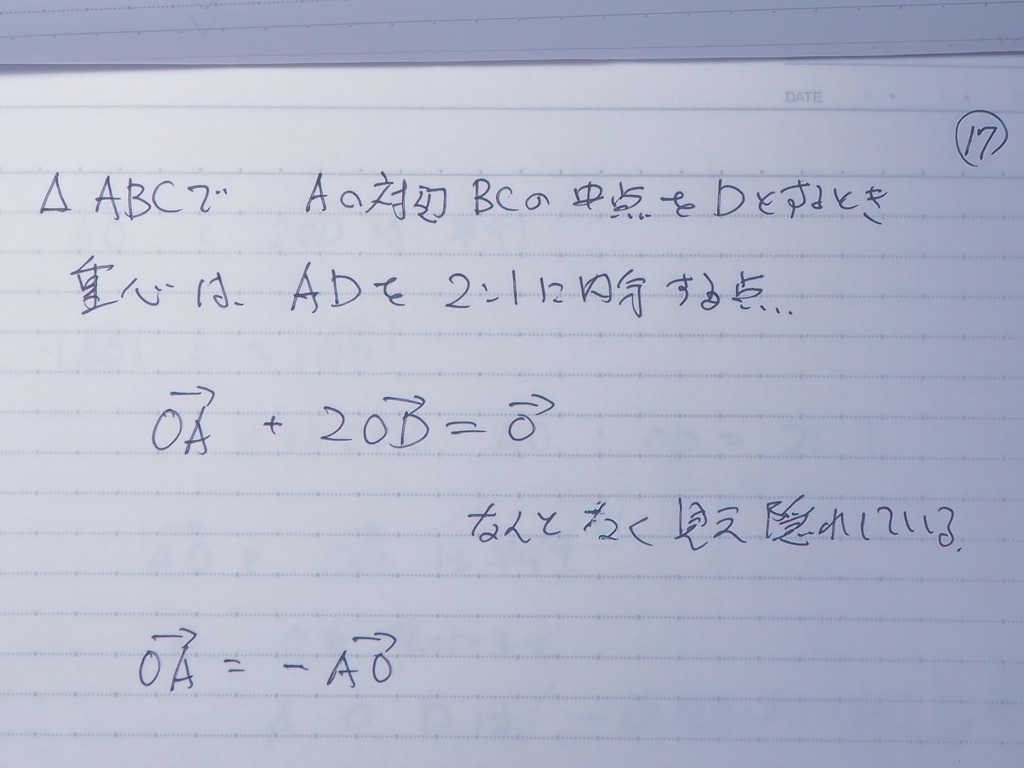 DATE
⑰
△ABCで Aの対辺BCの中点をDとするとき
重心は、ADを2:1に内分する点…
$\overrightarrow{OA} + 2\overrightarrow{OD} = \vec{0}$
なんとなく見え隠れしている。
$\overrightarrow{OA} = -\overrightarrow{AO}$